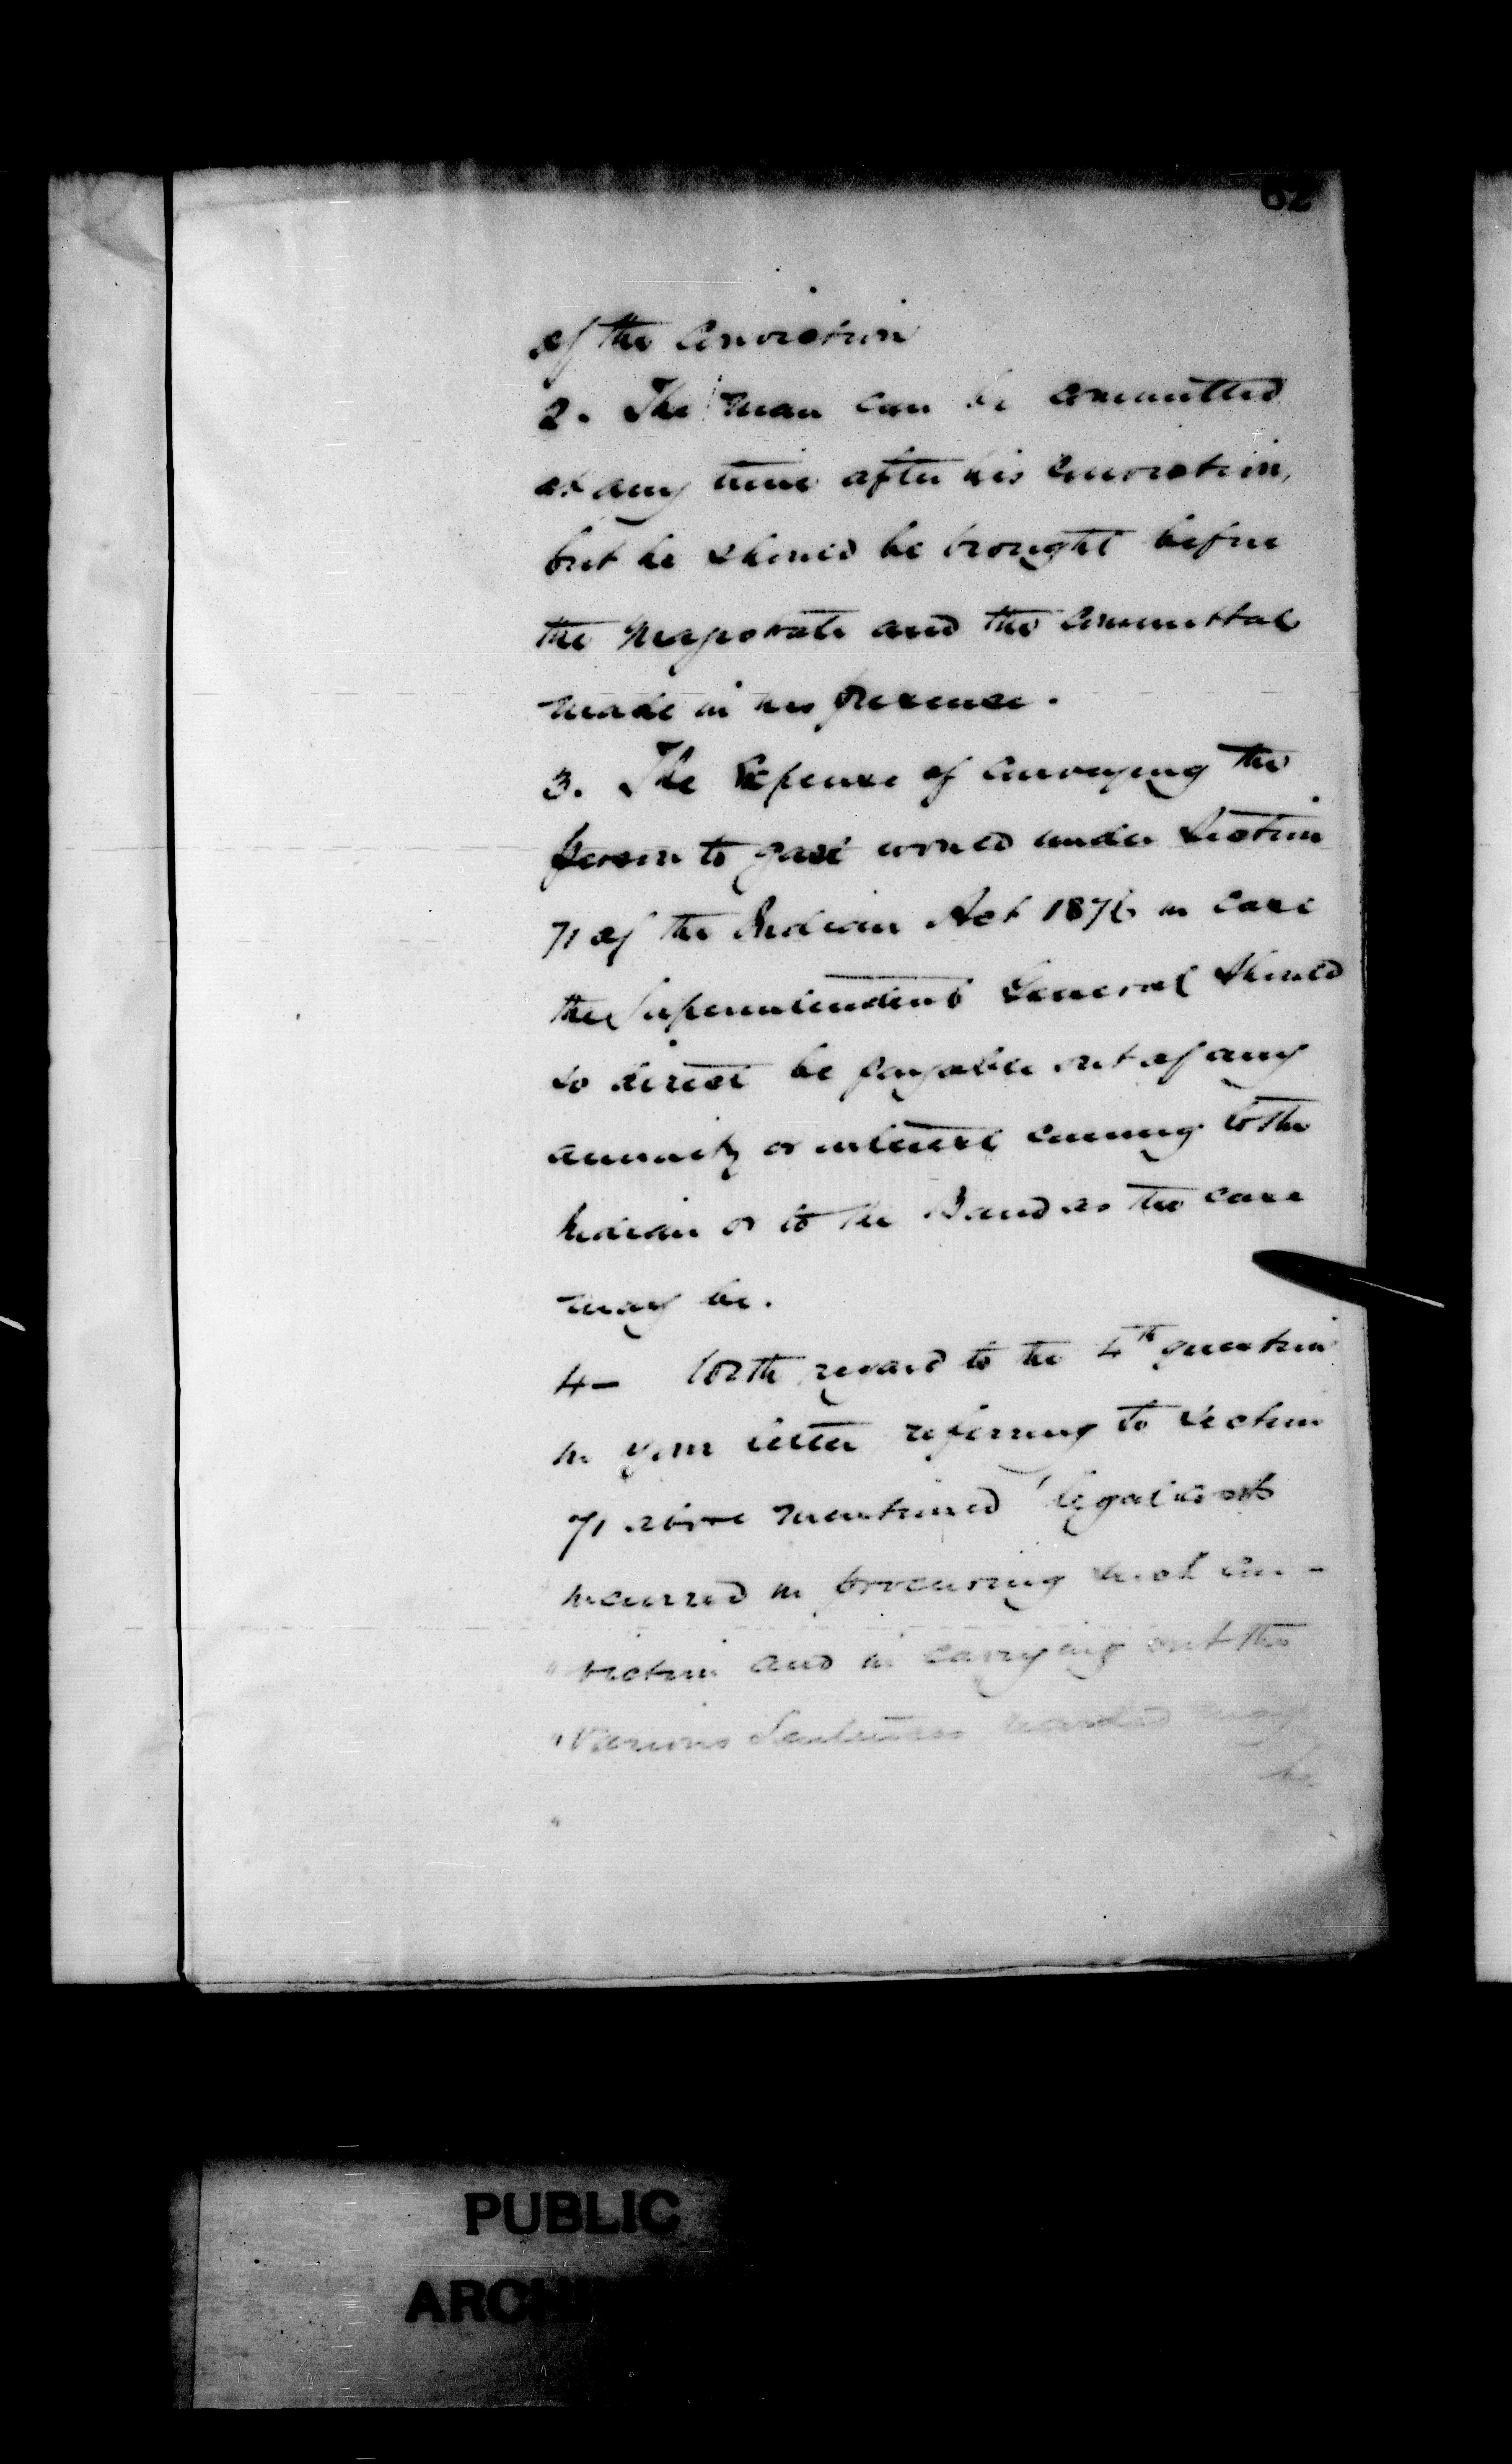 62
of the Conviction
2. The man can be committed
at any time after his conviction,
but he should be brought before
the Magistrate and the Committal
made in his presence.
3. The Expense of conveying the
person to gaol would under Section
71 of the Indian Act 1876 in case
the Superintendent General should
so direct be payable out of any
annuity or interest coming to the
Indian or to the Band as the case
may be.
4- With regard to the 4th question
in your letter referring to section
71 above mentioned "legal costs
incurred in procuring such con-
"viction and in carrying out the
"various Sentences recorded may
be
"
PUBLIC
ARCH